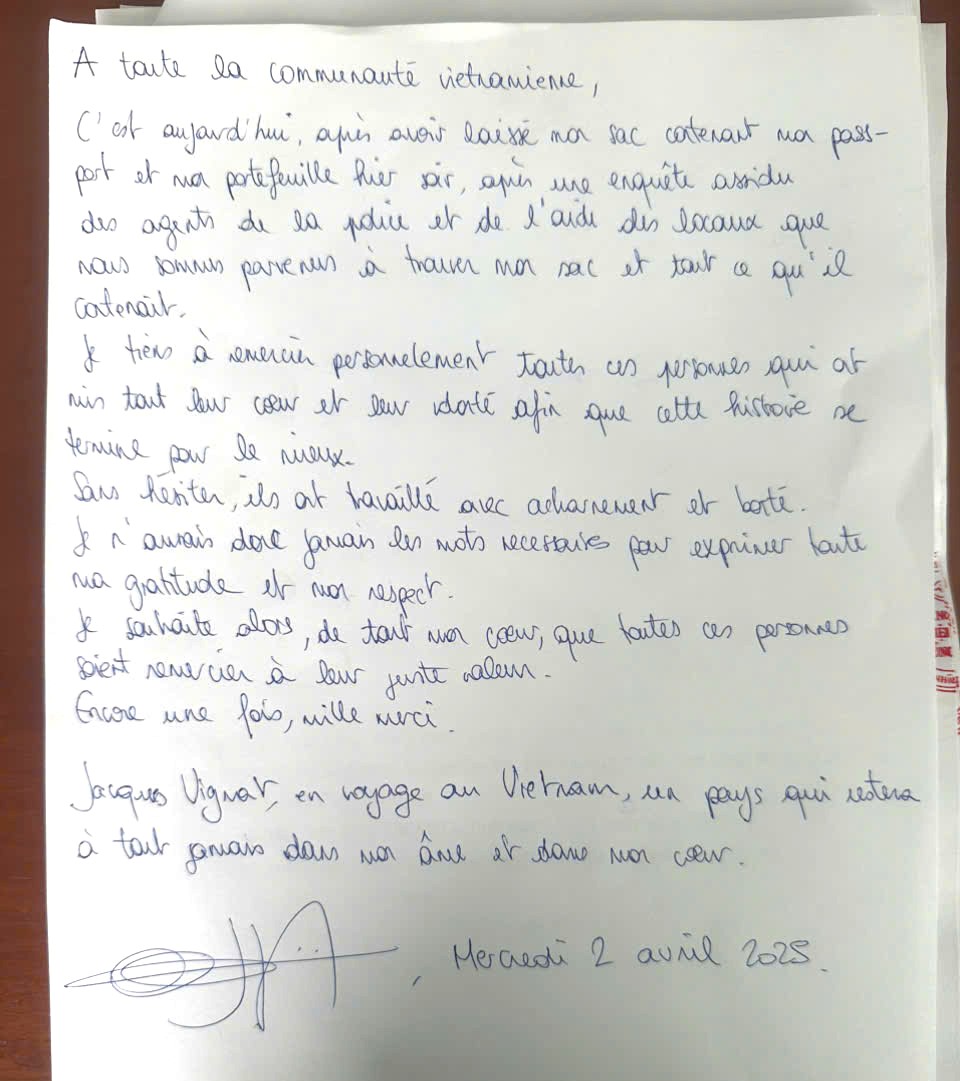 A toute la communauté vietnamienne,
C'est aujourd'hui, après avoir laissé mon sac contenant mon pass-
port et mon portefeuille hier soir, après une enquête assidu
des agents de la police et de l'aide des locaux que
nous sommes parvenus à trouver mon sac et tout ce qu'il
contenait.
Je tiens à remercier personnelement toutes ces personnes qui ont
mis tout leur cœur et leur volonté afin que cette histoire se
termine pour le mieux.
Sans hésiter, ils ont travaillé avec acharnement et bonté.
Je n'aurais donc jamais les mots necessaires pour exprimer toute
ma gratitude et mon respect.
Je souhaite alors, de tout mon cœur, que toutes ces personnes
soient remercier à leur juste valeur.
Encore une fois, mille merci.
Jacques Vignat, en voyage au Vietnam, un pays qui restera
à tout jamais dans mon âme et dans mon cœur.
, Mercredi 2 avril 2025.